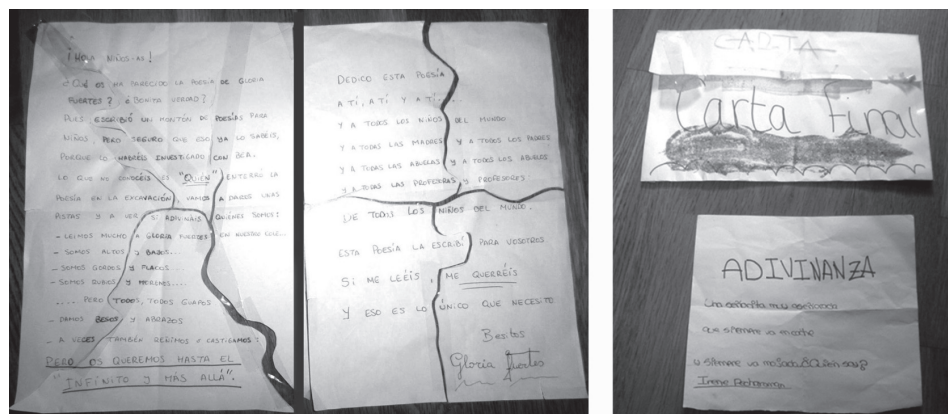 ¡HOLA NIÑOS-AS!
¿QUÉ OS HA PARECIDO LA POESÍA DE GLORIA
FUERTES? ¿BONITA VERDAD?
PUES ESCRIBIÓ UN MONTÓN DE POESÍAS PARA
NIÑOS, PERO SEGURO QUE ESO YA LO SABÉIS,
PORQUE LO HABRÉIS INVESTIGADO CON BEA.
LO QUE NO CONOCÉIS ES "QUIÉN" ENTERRÓ LA
POESÍA EN LA EXCAVACIÓN, VAMOS A DAROS UNAS
PISTAS Y A VER SI ADIVINÁIS QUIÉNES SOMOS:
- LEÍMOS MUCHO A GLORIA FUERTES EN NUESTRO COLE...
- SOMOS ALTOS Y BAJOS...
- SOMOS GORDOS Y FLACOS...
- SOMOS RUBIOS Y MORENOS....
.... PERO TODOS, TODOS GUAPOS
- DAMOS BESOS Y ABRAZOS
- A VECES TAMBIÉN REÑIMOS Y CASTIGAMOS:
PERO OS QUEREMOS HASTA EL
"INFINITO Y MÁS ALLÁ".
DEDICO ESTA POESÍA
A TÍ, A TÍ Y A TÍ.....
Y A TODOS LOS NIÑOS DEL MUNDO
Y A TODAS LAS MADRES Y A TODOS LOS PADRES
Y A TODAS LAS ABUELAS Y A TODOS LOS ABUELOS
Y A TODAS LAS PROFESORAS Y PROFESORES
DE TODOS LOS NIÑOS DEL MUNDO.
ESTA POESÍA LA ESCRIBÍ PARA VOSOTROS
SI ME LEÉIS, ME QUERRÉIS
Y ESO ES LO ÚNICO QUE NECESITO
Besitos
Gloria Fuertes
CARTA
Carta final
ADIVINANZA
Una señorita muy
que siempre va en coche
y siempre va mojada ¿Quién soy?